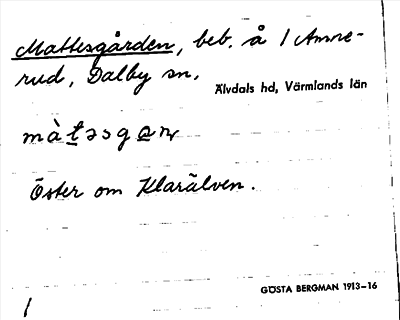 Mattesgården, beb. å 1 Amne-
rud, Dalby sn,
Älvdals hd, Värmlands län
màt̲əsga̲ɳ
Öster om Klarälven.
GÖSTA BERGMAN 1913–16
/